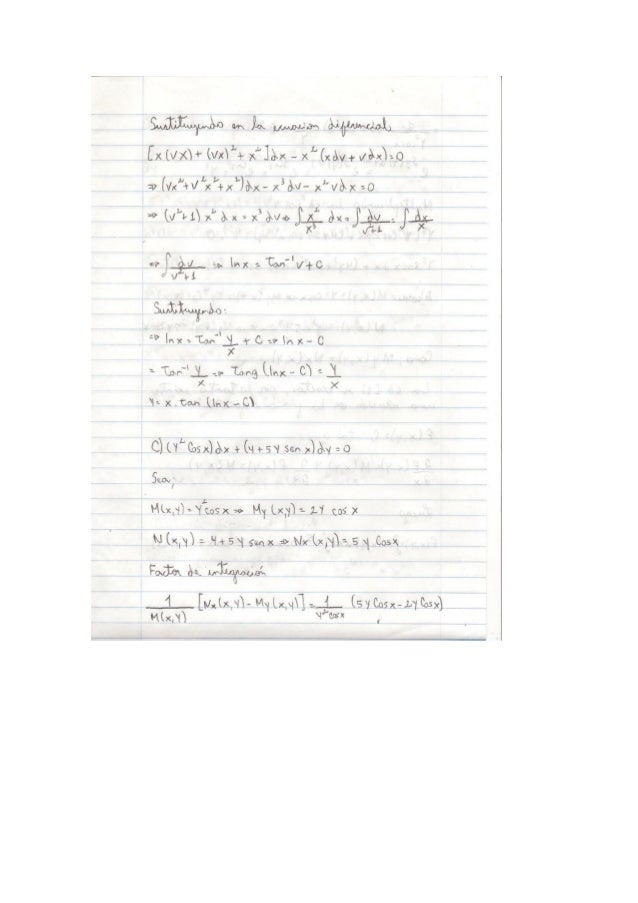 Sustituyendo en la ecuacion diferencial
[x(vx)+(vx)²+x²]dx - x²(xdv+vdx)=0
⇒ (vx²+v²x²+x²)dx - x³dv - x²vdx=0
⇒ (v²+1)x²dx = x³dv ⇒ ∫ x²/x³ dx = ∫ dv/v²+1 = ∫ dx/x
⇒ ∫ dv/v²+1 ⇒ lnx = Tan⁻¹v+C
Sustituyendo:
⇒ lnx = Tan⁻¹ y/x + C ⇒ lnx - C
= Tan⁻¹ y/x ⇒ Tang (lnx - C) = y/x
Y = x.tan (lnx - C)
C) (y² Cosx)dx + (4+5y sen x)dy = 0
Sea,
M(x,y) = y²cosx ⇒ My (x,y) = 2y cos x
N(x,y) = 4+5y senx ⇒ Nx (x,y) = 5y Cosx
Factor de integración
1/M(x,y) [Nx(x,y) - My(x,y)] = 1/y²cosx (5yCosx - 2yCosx)